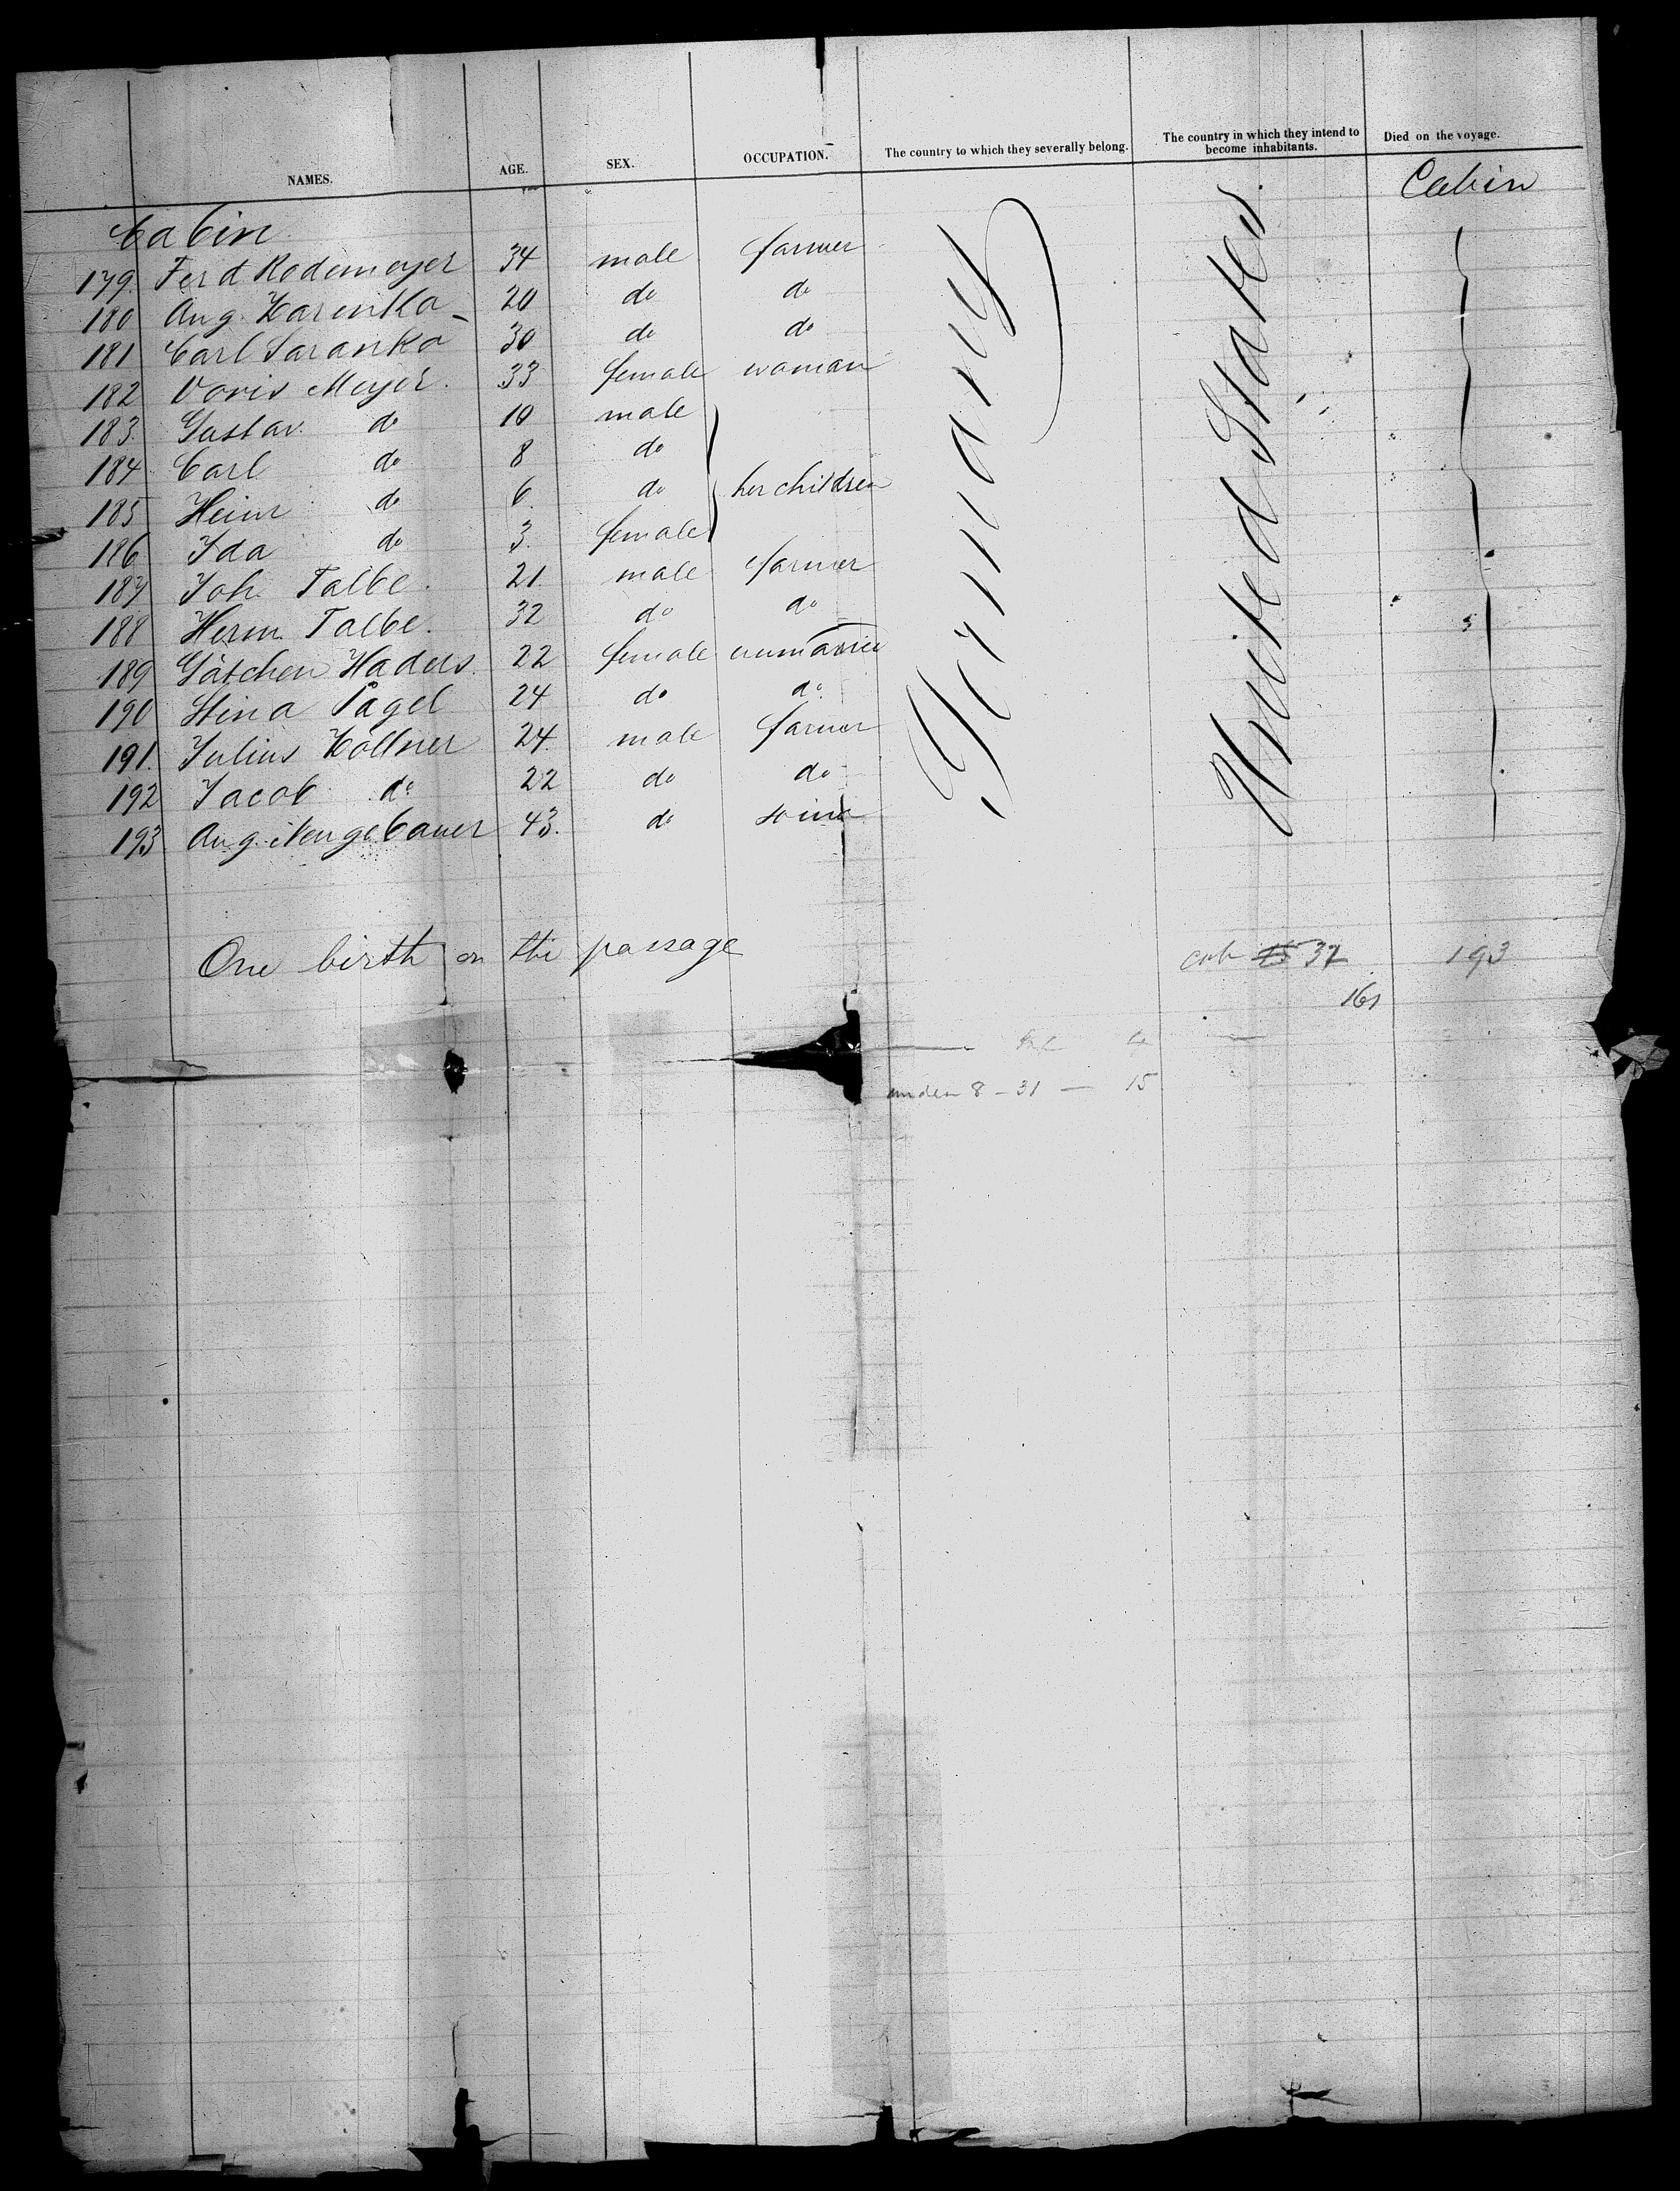 NAMES. AGE. SEX. OCCUPATION. The country to which they severally belong. The country in which they intend to become inhabitants. Died on the voyage.
Cabin Cabin
179. Ferd Rodemeyer 34 male farmer
180 Aug. Karinka 20 do do
181 Carl Saranka 30 do do
182 Doris Meyer. 33 female woman
183. Gustav. do 10 male
184 Carl do 8 do
185 Heinr do 6. do her children
186 Ida do 3. female
187 Joh. Talbe. 21 male farmer
188 Herm. Talbe. 32 do do
189 Gätchen Haders. 22 female unmarried
190 Stina Pagel 24 do do
191. Julius Köllner 24. male farmer
192 Jacob do 22 do do
193 Aug. Neugebauer 43. do
Germany
United States.
One birth on the passage
cab 32 193
161
4
under 8 - 31 — 15